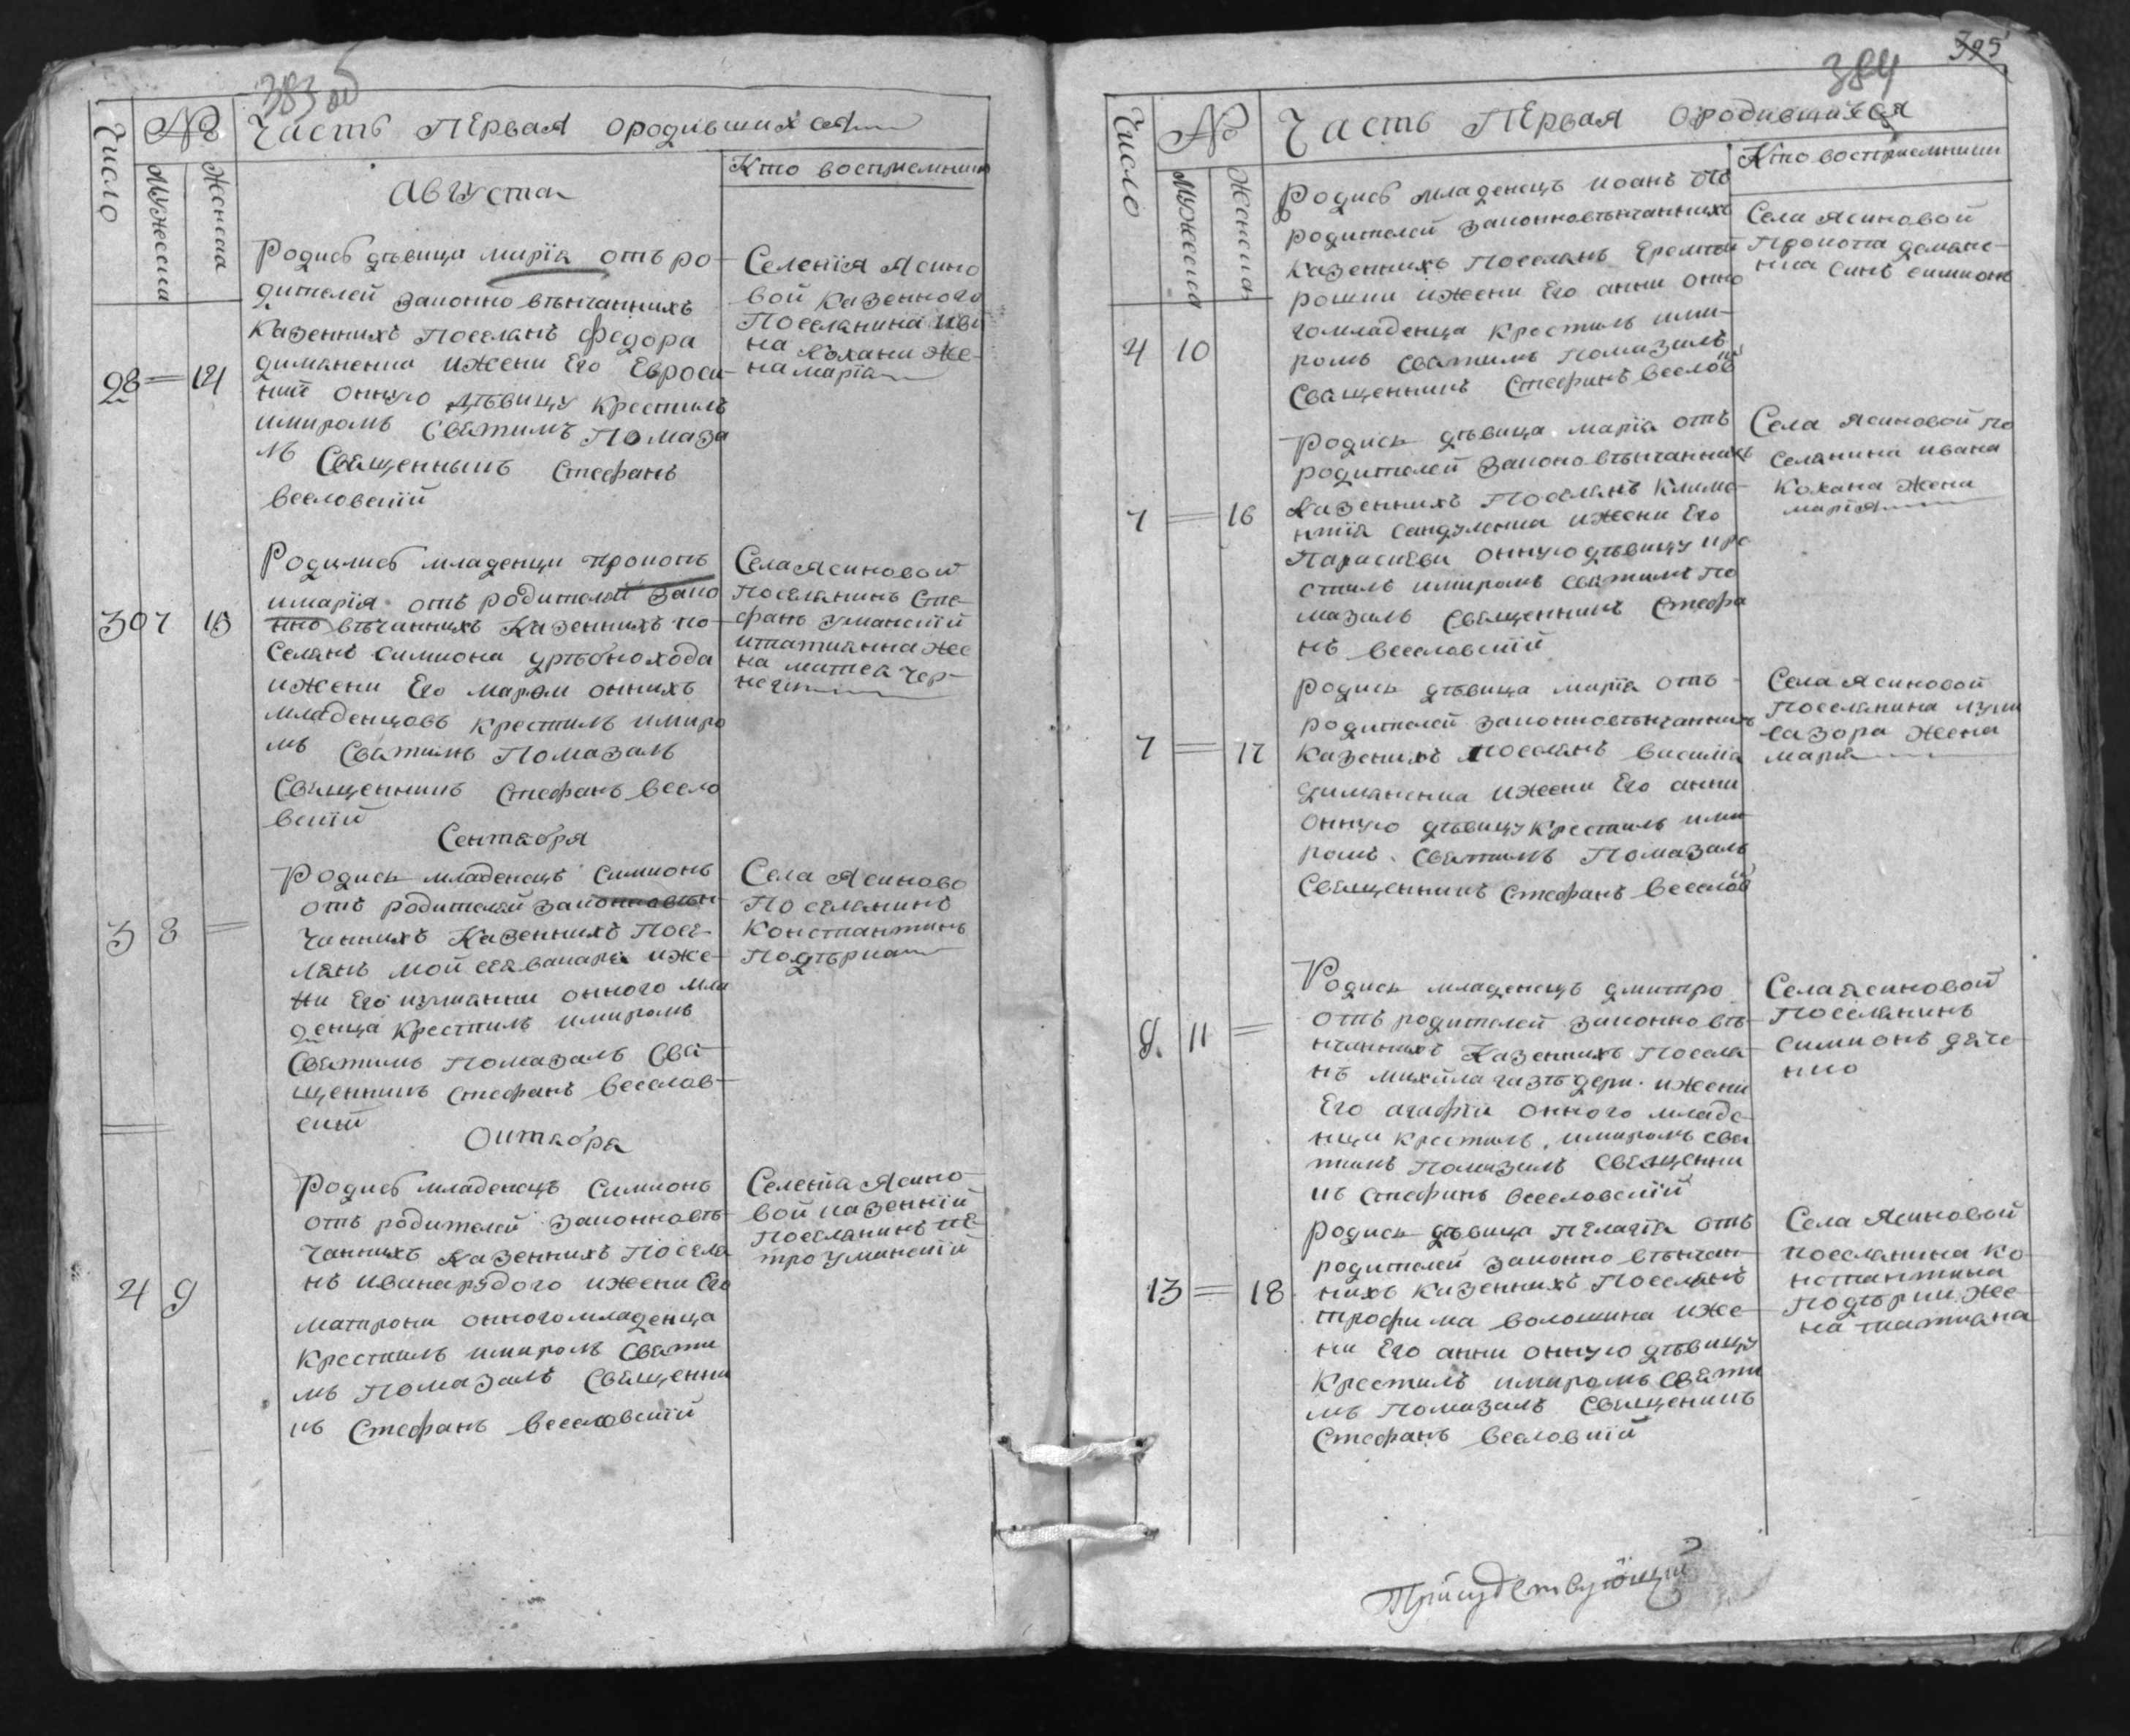 383 об
Число
№
Мужеска
Женска
Часть Первая ородившихся
Кто восприемники
Августа
28 = 14
Родись дѣвица марїа отъ ро
дителей законно вѣнчаннихъ
Казеннихъ Поселянъ Федора
диманенка ижени Его Евроси
нии онную дѣвицу крестилъ
имиромъ Святимъ Помаза
лъ Священникъ Стефанъ
веселовскїй
Селенїя Ясино
вой казенного
Поселянина Ива
на Кохани же-
на марїа
30 7 15
Родились младенци Прокопъ
имарїя отъ родителей Зако
нно вѣчаннихъ Казеннихъ по
Селянъ Симиона дрѣбнохода
ижени Его марфи оннихъ
младенцовъ крестилъ имиро
мъ Святимъ Помазалъ
Священникъ Стефанъ весло
вскїй
Села Ясиновой
Поселянинъ Сте-
фанъ Уманскїй
итатиянна же
на матвея Чер-
Сентября
3 8 =
Родись младенецъ Симионъ
отъ родителей законновѣн
чаннихъ Казеннихъ Посе-
лянъ ижe-
ни Его онного мла
денца Крестилъ имиромъ
Святимъ Помазалъ Свя
щенникъ Стефанъ веселов-
скїй
Села Ясиново
Поселянинъ
Константинъ
Подгѣрка
Октября
4 9
Родись младенецъ Симионъ
отъ родителей Законновѣ-
чаннихъ Казеннихъ Посела
нъ Ивана рудого ижени Его
матрони онного младенца
Крестилъ имиромъ Святи
мъ Помазалъ Священни
къ Стефанъ веселовскїй
Селенїа Ясино
вой казеннїй
Поселянинъ Пе
тро Уманскїй
395
384
Число
№
Мужеска
Женска
Часть Первая Ородившихся
Кто восприемники
4 10
Родись младенецъ иоанъ отъ
родителей Законновѣнчаннихъ
Казеннихъ Поселянъ Еремѣи
рошки ижени Его анни онно
гомладенца Крестилъ ими-
ромъ Святимъ Помазалъ
Священникъ Стефанъ веслов
Села Ясиновой
Прокопа демане-
нка синъ симионъ
7 = 16
Родись дѣвица марїа отъ
родителей Законовѣнчаннихъ
Казеннихъ Поселянъ Климе
нтїя Сандуленка ижени Его
Параскеви онную дѣвицу кре
стилъ имиромъ Святимъ По
мазалъ Священникъ Стефа
нъ веселовскїй
Села Ясиновой по
Селянина ивана
Кохана Жена
марїя
7 = 17
Родись дѣвица марїа отъ
родителей Законновѣнчаннихъ
Казенихъ Поселянъ василїа
диманенка ижени Его анни
Онную дѣвицу крестилъ ими
ромъ Святимъ Помазалъ
Священникъ Стефанъ веселов
Села Ясиновой
Поселянина луки
сазора жена
марїя
9. 11 =
Родись младенецъ дмитро
отъ родителей Законновѣ
нчаннихъ Казеннихъ Посела
нъ михйла ижени
Его агафїи онного младе
нца крестилъ имиромъ свя
тимъ Помазалъ Священни
къ Стефанъ веселовскїй
Села ясиновой
Поселянинъ
Симионъ дяче
нко
13 = 18
Родись дѣвица Пелагїа отъ
родителей Законно вѣнчан
нихъ Казеннихъ Поселянъ
трофима волошина иже-
ни Его анни онную дѣвицу
Крестилъ имиромъ святи
мъ Помазалъ Священикъ
Стефанъ весловкїй
Села Ясиновой
Поселянина Ко
нстантина
Подгѣрки же
на татияна
Присудствующїй